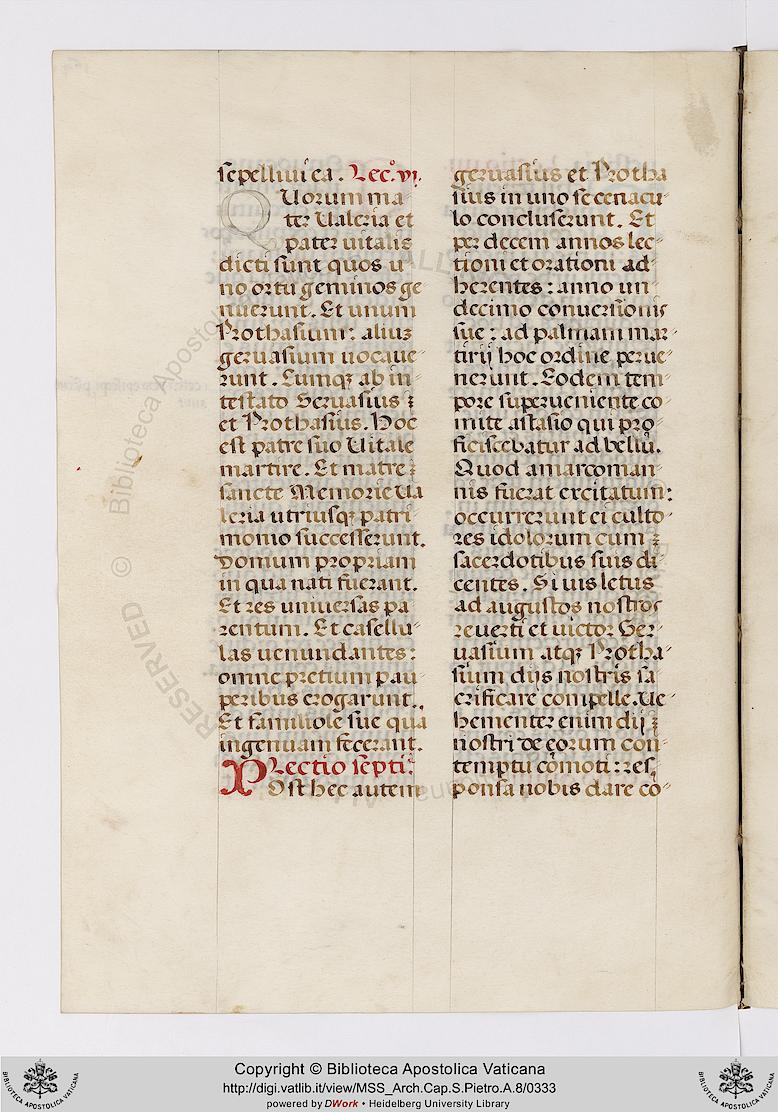 sepelliui ea. Lec.º vj.
QUorum ma-
ter Ualeria et
pater uitalis
dicti sunt quos u-
no ortu geminos ge-
nuerunt. Et unum
Prothasium: aliuz
geruasium uocaue-
runt. Cumqz ab in-
testato Geruasius
et Prothasius. Hoc
est patre suo Uitale
martire. Et matre
sancte Memorie Ua
leria utriusqz patri-
monio successerunt.
Domum propriam
in qua nati fuerant.
Et res uniuersas pa-
rentum. Et casellu-
las uenundantes:
omne pretium pau-
peribus erogarunt.
Et familiole sue qua
ingenuam fecerant.
Lectio septi.ª
POst hec autem
geruasius et Protha
sius in uno se cenacu-
lo concluserunt. Et
per decem annos lec-
tioni et orationi ad-
herentes: anno un-
decimo conuersionis
sue: ad palmam mar-
tirij hoc ordine perue-
nerunt. Eodem tem-
pore superueniente co-
mite astasio qui pro-
ficiscebatur ad bellū.
Quod a marcoman-
nis fuerat excitatum:
occurrerunt ei culto-
res idolorum cum
sacerdotibus suis di-
centes. Si uis letus
ad augustos nostros
reuerti et uictor Ger-
uasium atqz Protha-
sium dijs nostris sa-
crificare compelle. Ue-
hementer enim dij
nostri de eorum con-
temptu cōmoti: res-
ponsa nobis dare cō-
Copyright © Biblioteca Apostolica Vaticana
http://digi.vatlib.it/view/MSS_Arch.Cap.S.Pietro.A.8/0333
powered by DWork • Heidelberg University Library